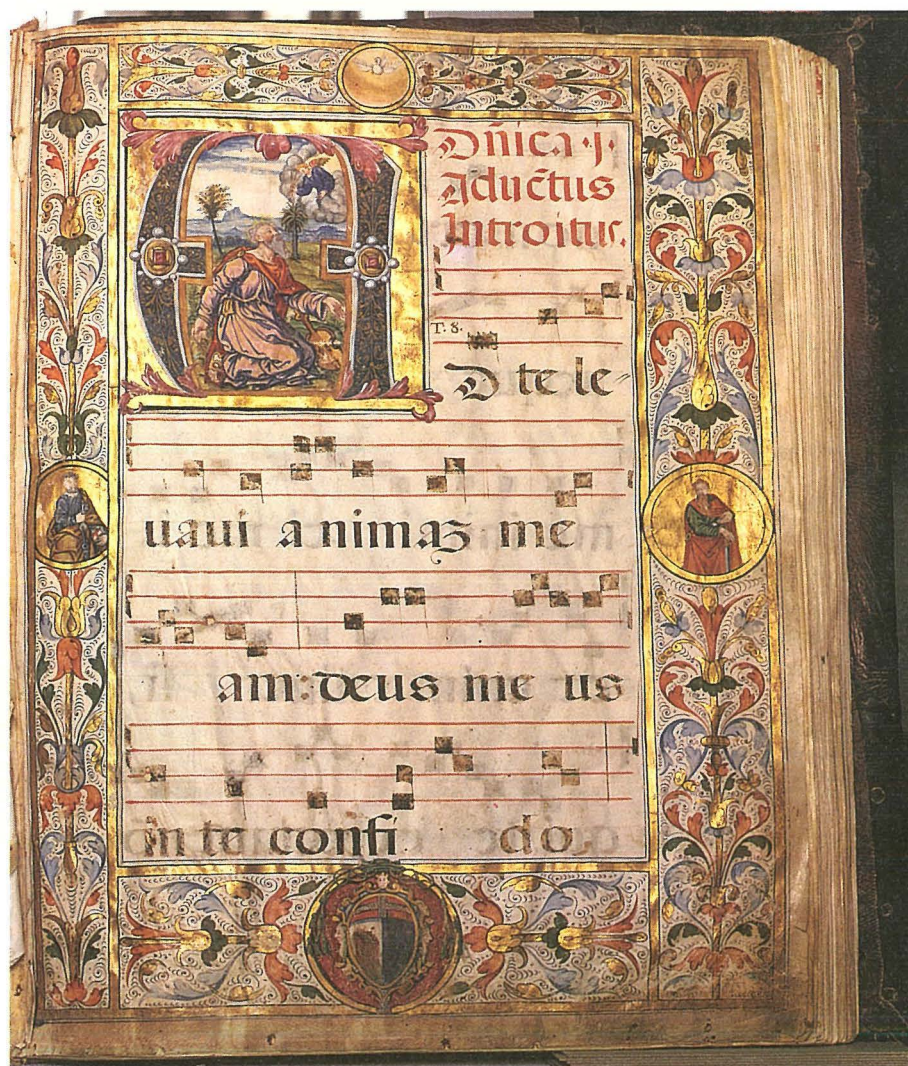 Dn̄ica · j ·
Aduc̄tus
Introitus.
T. 8.
AD te le-
uaui animaȝ me
am: deus me us
in te confi do